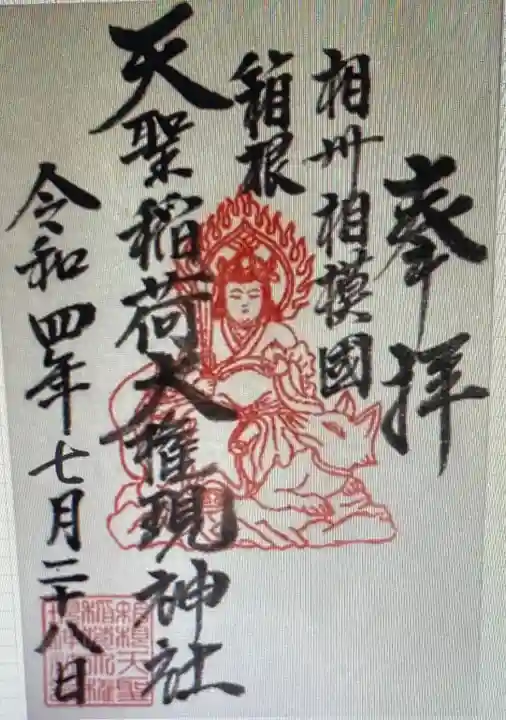 奉拝
相州相模國
箱根
天聖稲荷大権現神社
令和四年七月二十八日